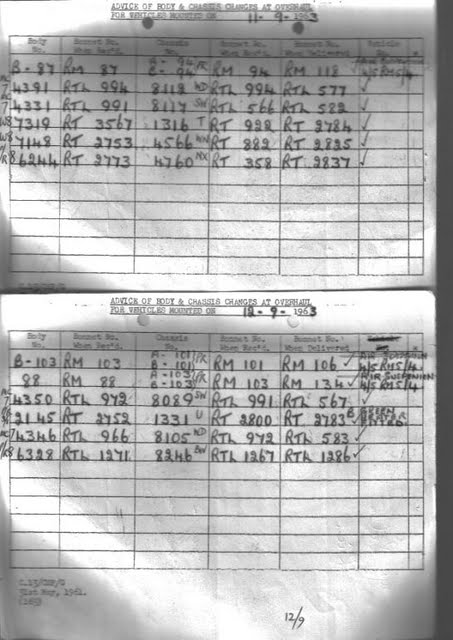 ADVICE OF BODY & CHASSIS CHANGES AT OVERHAUL
FOR VEHICLES MOUNTED ON 11-9-1963
Body No. Bonnet No. When Rec'd. Chassis No. Bonnet No. When Rec'd. Bonnet No. When Delivered Vehicle No.
B-87 RM 87 A-94/FR B-94 RM 94 RM 118 ✓ 4/5 RM5/4
7 4391 RTL 994 8112 WD RTL 994 RTL 577 ✓
7 4331 RTL 991 8117 SW RTL 566 RTL 582 ✓
W8 7319 RT 3567 1316 T RT 922 RT 2784 ✓
W8 7148 RT 2753 4566 RT 882 RT 2825 ✓
8 6244 RT 2773 4760 NX RT 358 RT 2837 ✓
ADVICE OF BODY & CHASSIS CHANGES AT OVERHAUL
FOR VEHICLES MOUNTED ON 12-9-1963
Body No. Bonnet No. When Rec'd. Chassis No. Bonnet No. When Rec'd. Bonnet No. When Delivered
B-103 RM 103 A-101/FR B-101 RM 101 RM 106 ✓ AIR SUSPENSION 4/5 RM5/4
88 RM 88 A-103/FR B-103 RM 103 RM 134 ✓ AIR SUSPENSION 4/5 RM5/4
7 4350 RTL 972 8089 SW RTL 991 RTL 567 ✓
2145 RT 2752 1331 U RT 2800 RT 2783
7 4346 RTL 966 8105 WD RTL 972 RTL 583 ✓
8 6328 RTL 1271 8246 BW RTL 1267 RTL 1286 ✓
31st May, 1961.
(169)
12/9